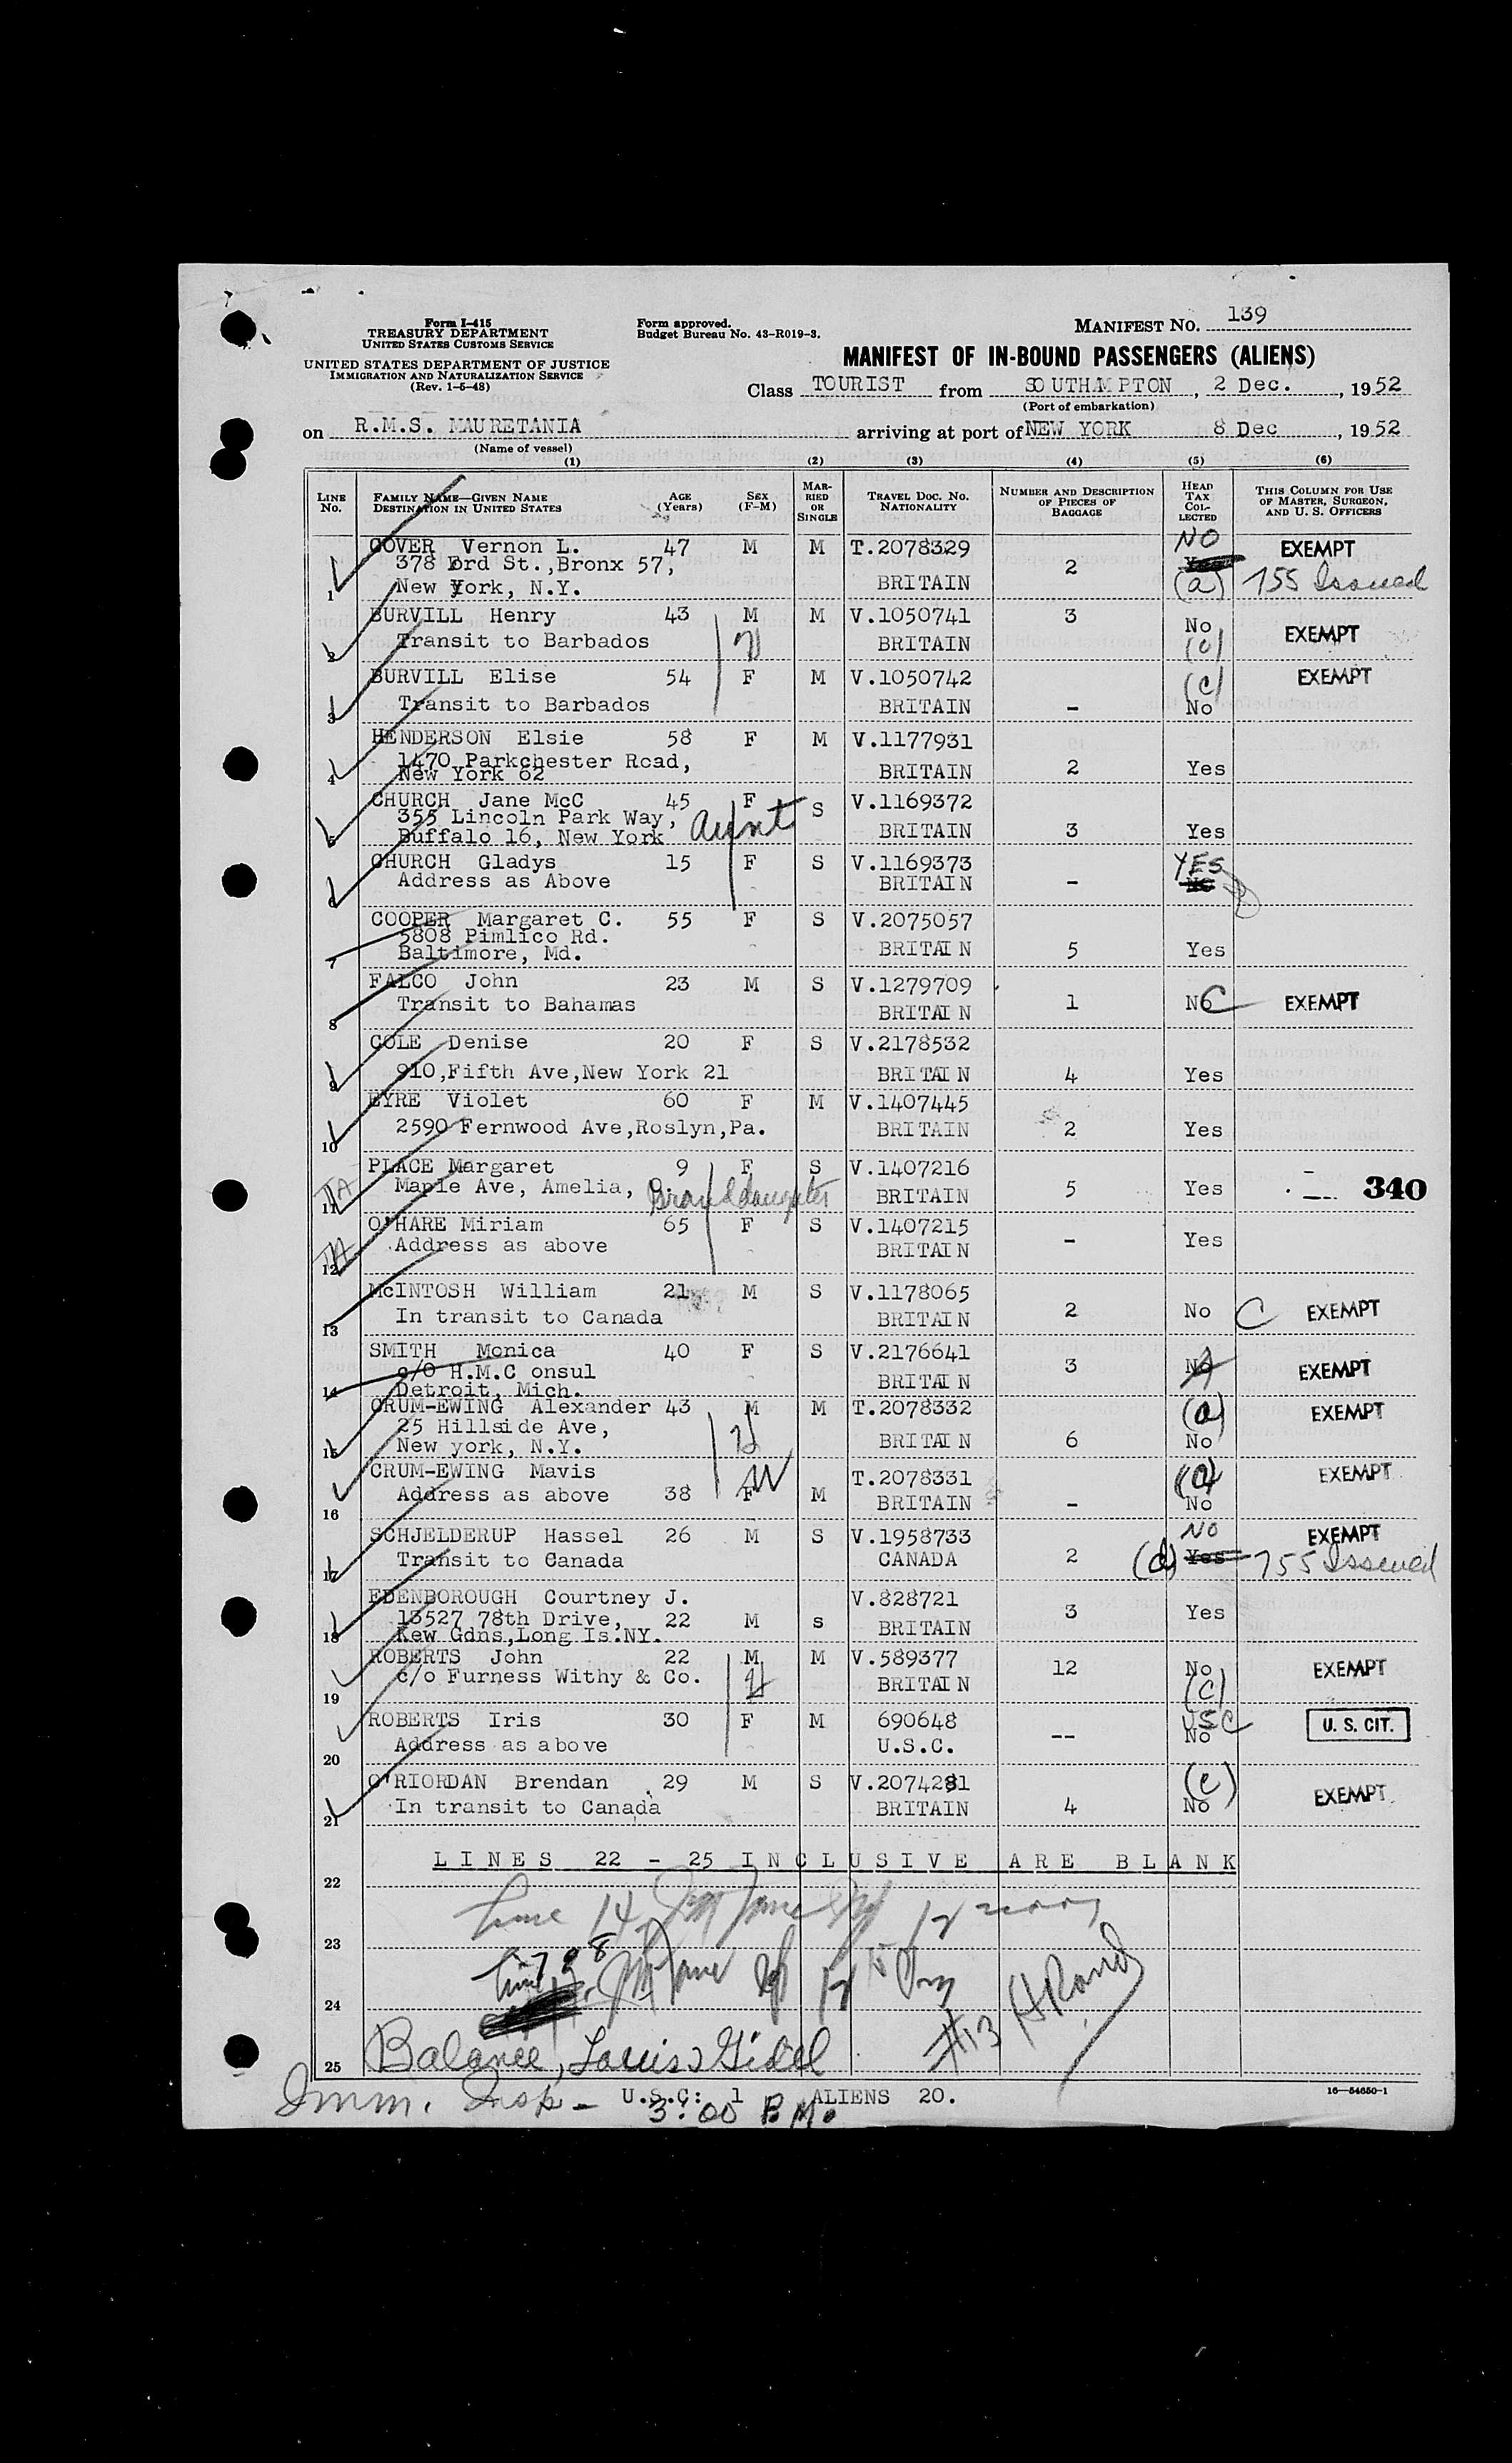 Form I-415
TREASURY DEPARTMENT
UNITED STATES CUSTOMS SERVICE
UNITED STATES DEPARTMENT OF JUSTICE
IMMIGRATION AND NATURALIZATION SERVICE
(Rev. 1-5-48)
Form approved.
Budget Bureau No. 43-R019-3.
MANIFEST NO. 139
MANIFEST OF IN-BOUND PASSENGERS (ALIENS)
Class TOURIST from SOUTHAMPTON, 2 Dec., 1952
(Port of embarkation)
on R.M.S. MAURETANIA arriving at port of NEW YORK 8 Dec, 1952
(Name of vessel)
(1) (2) (3) (4) (5) (6)
LINE NO. FAMILY NAME—GIVEN NAME DESTINATION IN UNITED STATES AGE (YEARS) SEX (F-M) MARRIED OR SINGLE TRAVEL DOC. NO. NATIONALITY NUMBER AND DESCRIPTION OF PIECES OF BAGGAGE HEAD TAX COLLECTED THIS COLUMN FOR USE OF MASTER, SURGEON, AND U. S. OFFICERS
GOVER Vernon L. 47 M M T.2078329 NO EXEMPT
378 Ford St.,Bronx 57, 2 Yes
1 New York, N.Y. BRITAIN (a) 755 Issued
BURVILL Henry 43 M M V.1050741 3 No
2 Transit to Barbados H BRITAIN (c) EXEMPT
BURVILL Elise 54 F M V.1050742 (c) EXEMPT
3 Transit to Barbados BRITAIN - No
HENDERSON Elsie 58 F M V.1177931
1470 Parkchester Road,
4 New York 62 BRITAIN 2 Yes
CHURCH Jane McC 45 F S V.1169372
355 Lincoln Park Way, aunt
5 Buffalo 16, New York BRITAIN 3 Yes
CHURCH Gladys 15 F S V.1169373 YES
6 Address as Above BRITAIN - No
COOPER Margaret C. 55 F S V.2075057
5808 Pimlico Rd.
7 Baltimore, Md. BRITAIN 5 Yes
FALCO John 23 M S V.1279709
8 Transit to Bahamas BRITAIN 1 No C EXEMPT
COLE Denise 20 F S V.2178532
9 910,Fifth Ave,New York 21 BRITAIN 4 Yes
EYRE Violet 60 F M V.1407445
10 2590 Fernwood Ave,Roslyn,Pa. BRITAIN 2 Yes
PLACE Margaret 9 F S V.1407216
11 Maple Ave, Amelia, O. Granddaughter BRITAIN 5 Yes 340
O'HARE Miriam 65 F S V.1407215
12 Address as above BRITAIN - Yes
McINTOSH William 21 M S V.1178065
13 In transit to Canada BRITAIN 2 No C EXEMPT
SMITH Monica 40 F S V.2176641
c/O H.M.C onsul 3 No A EXEMPT
14 Detroit, Mich. BRITAIN
CRUM-EWING Alexander 43 M M T.2078332 (a) EXEMPT
25 Hillside Ave, H
15 New york, N.Y. BRITAIN 6 No
CRUM-EWING Mavis W T.2078331 (a) EXEMPT
16 Address as above 38 F M BRITAIN - No
SCHJELDERUP Hassel 26 M S V.1958733 NO EXEMPT
17 Transit to Canada CANADA 2 (d) Yes 755 Issued
EDENBOROUGH Courtney J. V.828721
13527 78th Drive, 22 M s 3 Yes
18 Kew Gdns,Long Is.NY. BRITAIN
ROBERTS John 22 M M V.589377 12 No EXEMPT
19 c/o Furness Withy & Co. H BRITAIN (c)
ROBERTS Iris 30 F M 690648 USC U. S. CIT.
20 Address as above U.S.C. -- No
O'RIORDAN Brendan 29 M S V.2074281 (c) EXEMPT
21 In transit to Canada BRITAIN 4 No
LINES 22 - 25 INCLUSIVE ARE BLANK
22
Line 14, 12 noon
23
Line 7 & 8
24
#13
25 Balance, Louis Gidel
Imm. Insp - U.S.C: 1 ALIENS 20.
3:00 P.M.
16—54650-1